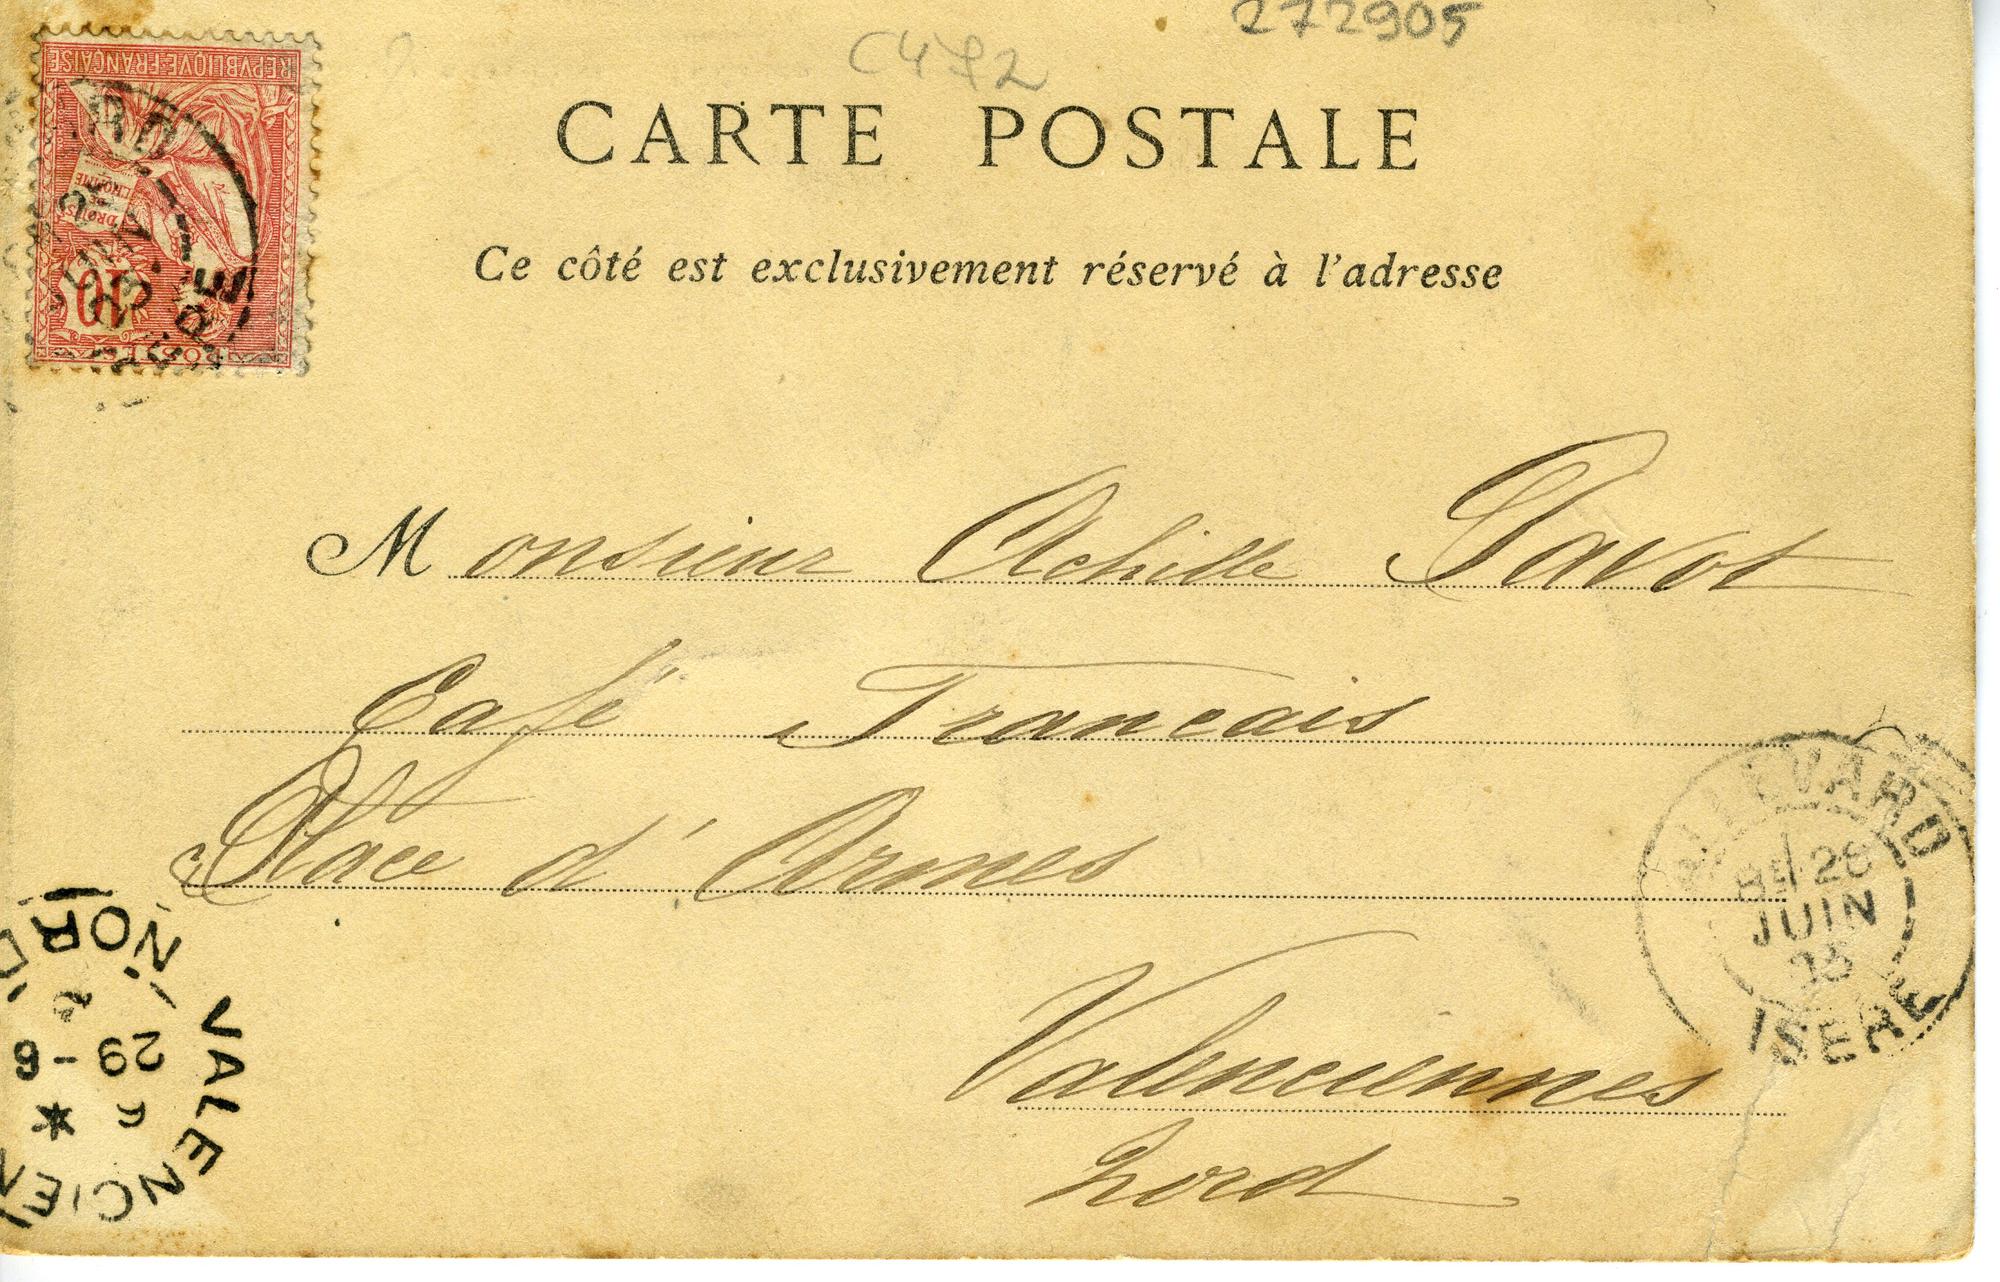 272905
C472
REPVBLIQVE FRANÇAISE
DROITS
DE
L'HOMME
10
CARTE POSTALE
Ce côté est exclusivement réservé à l'adresse
Monsieur Achille Pavot
Café Francais
Place d'Armes
Valenciennes
Nord
ALLEVARD
28
JUIN
03
ISERE
VALENCIEN
NORD
29 - 6